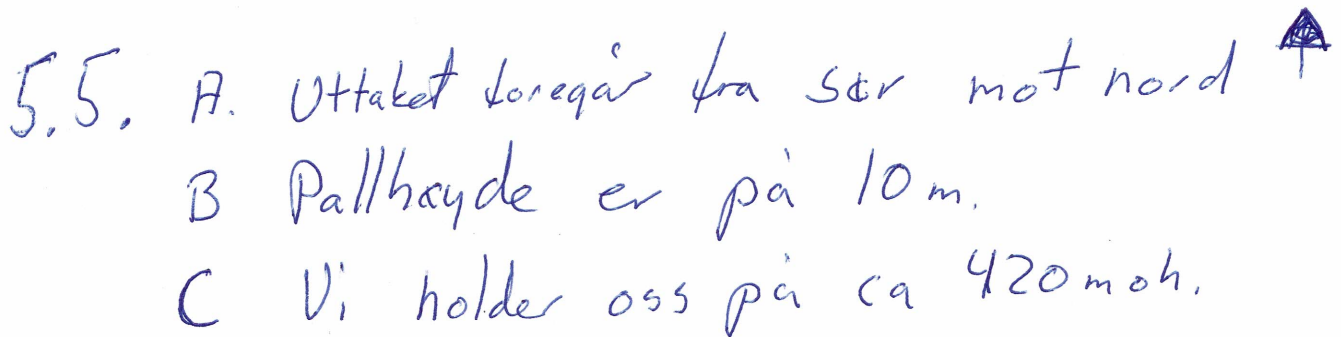 5.5. A. Uttaket foregår fra sør mot nord
B Pallhøyde er på 10 m.
C Vi holder oss på ca 420 moh.